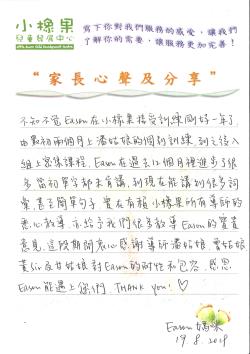 小橡果
兒童發展中心
Little Acorn Child Development Centre
寫下你對我們服務的感受，讓我們
了解你的需要，讓服務更加完善！
“家長心聲及分享”
不知不覺Eason在小橡果接受訓練剛好一年了，
由最初兩個月上潘姑娘的個別訓練，到之後入
組上密集課程，Eason在過去12個月裡進步了很
多，當初單字都未肯講，到現在能講到很多詞
彙，甚至簡單句子，實在有賴小橡果所有導師的
悉心教導，亦給予我們很多教導Eason的寶貴
意見，這段期間衷心感謝導師潘姑娘，曹姑娘，
黃Sir及甘姑娘對Eason的耐性和包容，感恩
Eason能遇上您們，Thank you!
Eason媽咪
19.8.2019